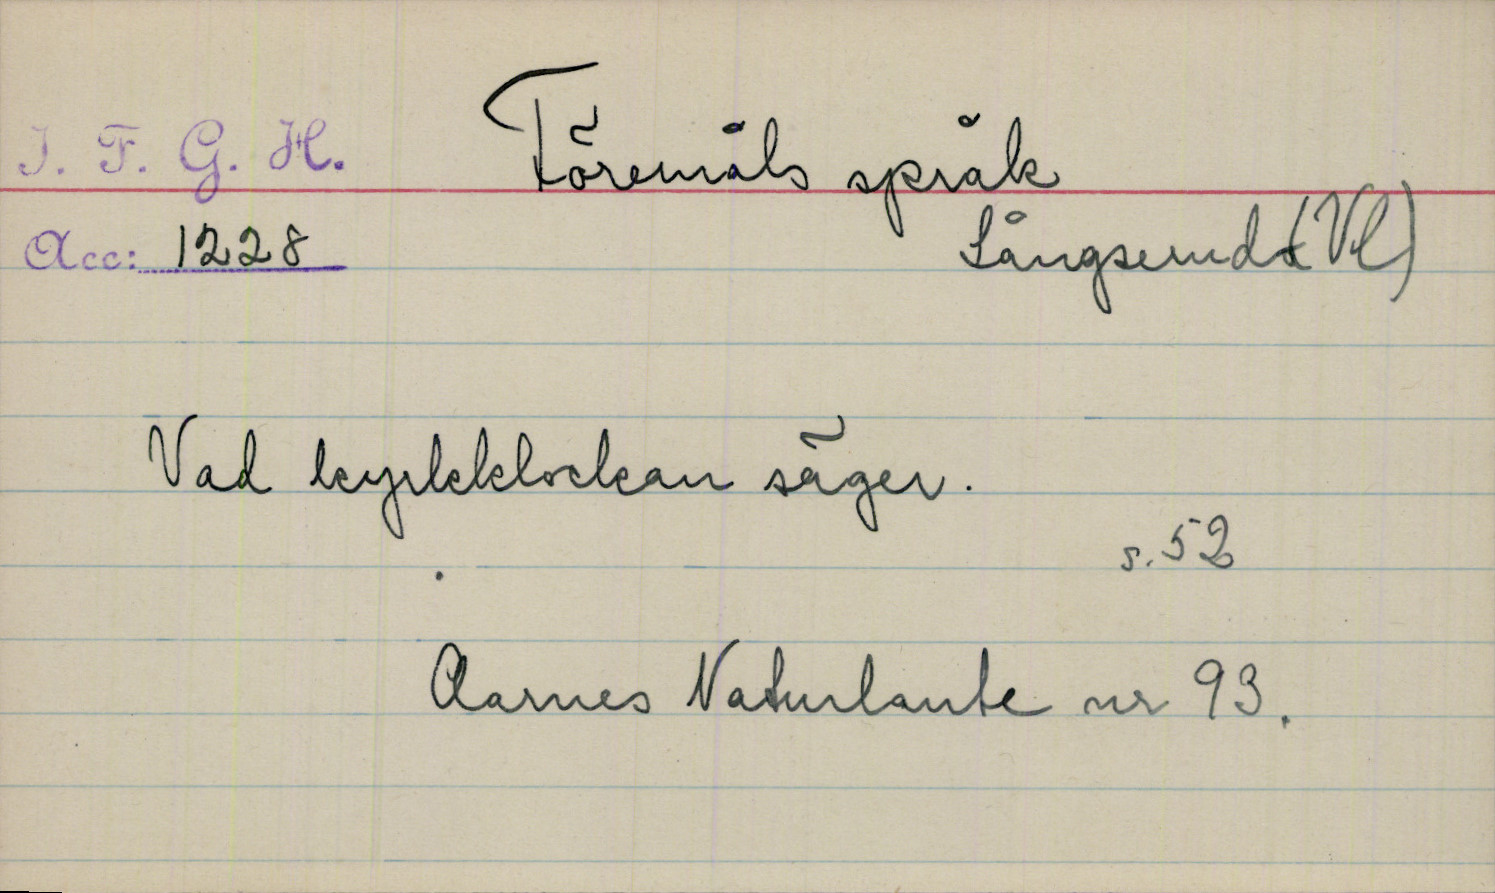 I. F. G. H.
Föremåls språk
Acc: 1228
Långserud (Vl)
Vad kyrkklockan säger.
s. 52
Aarnes Naturlaute nr 93.